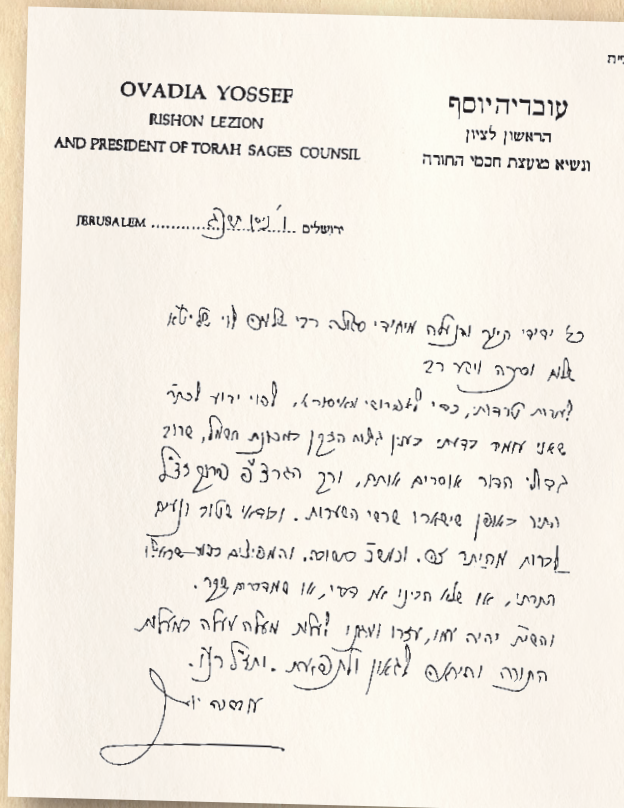 OVADIA YOSSEF
RISHON LEZION
AND PRESIDENT OF TORAH SAGES COUNSIL
עובדיה יוסף
הראשון לציון
ונשיא מועצת חכמי התורה
JERUSALEM ירושלים
ידידי היקר והנעלה מיחידי סגולה רבי שליט"א
שלום וברכה וישע רב
למרות טרדותי, כדי לאפרושי מאיסורא, לפוי ידוע לכת"ר
שאני עומד בדעתי בענין גילוח הזקן במכונת חשמל, שרוב
גדולי הדור אוסרים אותה, ורק הגרצ"פ פרנק זצ"ל
התיר באופן שישארו שרשי השערות. ובודאי שטוב ונעים
לברוח מהיתר זה. והמפיצים
התרתי, או שלא הבינו את דברי, או שמדברים שקר.
והשי"ת יהיה עמו, עזרו ומגנו לעלות מעלה מעלה במעלות
התורה והיראה לגאון ולתפארת.
עובדיה יוסף